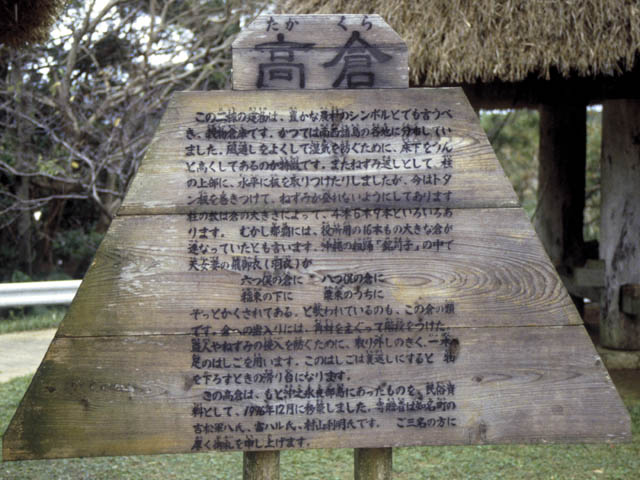 たか くら
高倉
この二棟の建物は、豊かな農村のシンボルとでも言うべ
き、穀物倉庫です。かつては南西諸島の各地に分布してい
ました。風通しをよくして湿気を防ぐために、床下をうん
と高くしてあるのが特徴です。またねずみ返しとして、柱
の上部に、水平に板を取りつけたりしましたが、今はトタ
ン板を巻きつけて、ねずみが登れないようにしてあります
柱の数は倉の大きさによって、4本6本9本といろいろあ
ります。むかし那覇には、役所用の16本もの大きな倉が
連なっていたとも言います。沖縄の組踊「銘苅子」の中で
天女の飛御衣(羽衣)が
六つ俣の倉に 八つ俣の倉に
稲束の下に 粟束のうちに
そっとかくされてある、と歌われているのも、この倉の類
です。倉への出入りには、角材をえぐって階段をつけた、
盗人やねずみの侵入を防ぐために、取り外しのきく、一本
足のはしごを用います。このはしごは裏返しにすると 物
を下ろすときの滑り台になります。
この高倉は、もと沖之永良部島にあったものを、民俗資
料として、1976年12月に移築しました。寄贈者は知名町の
吉松軍八氏、富ハル氏、村山利明氏です。ご三名の方に
厚く御礼を申し上げます。